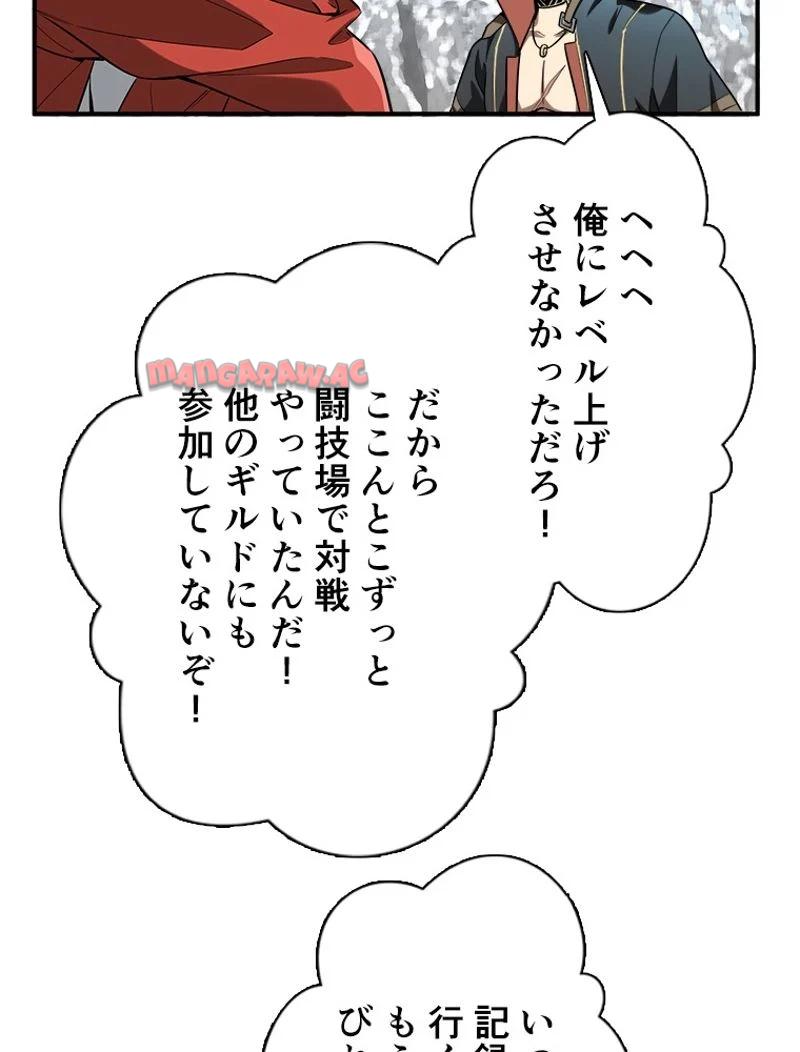 へへへ
俺にレベル上げ
させなかっただろ！
だから
ここんとこずっと
闘技場で対戦
やっていたんだ！
他のギルドにも
参加していないぞ！
MANGARAW.AC
いつ
記録
行く
もう
び